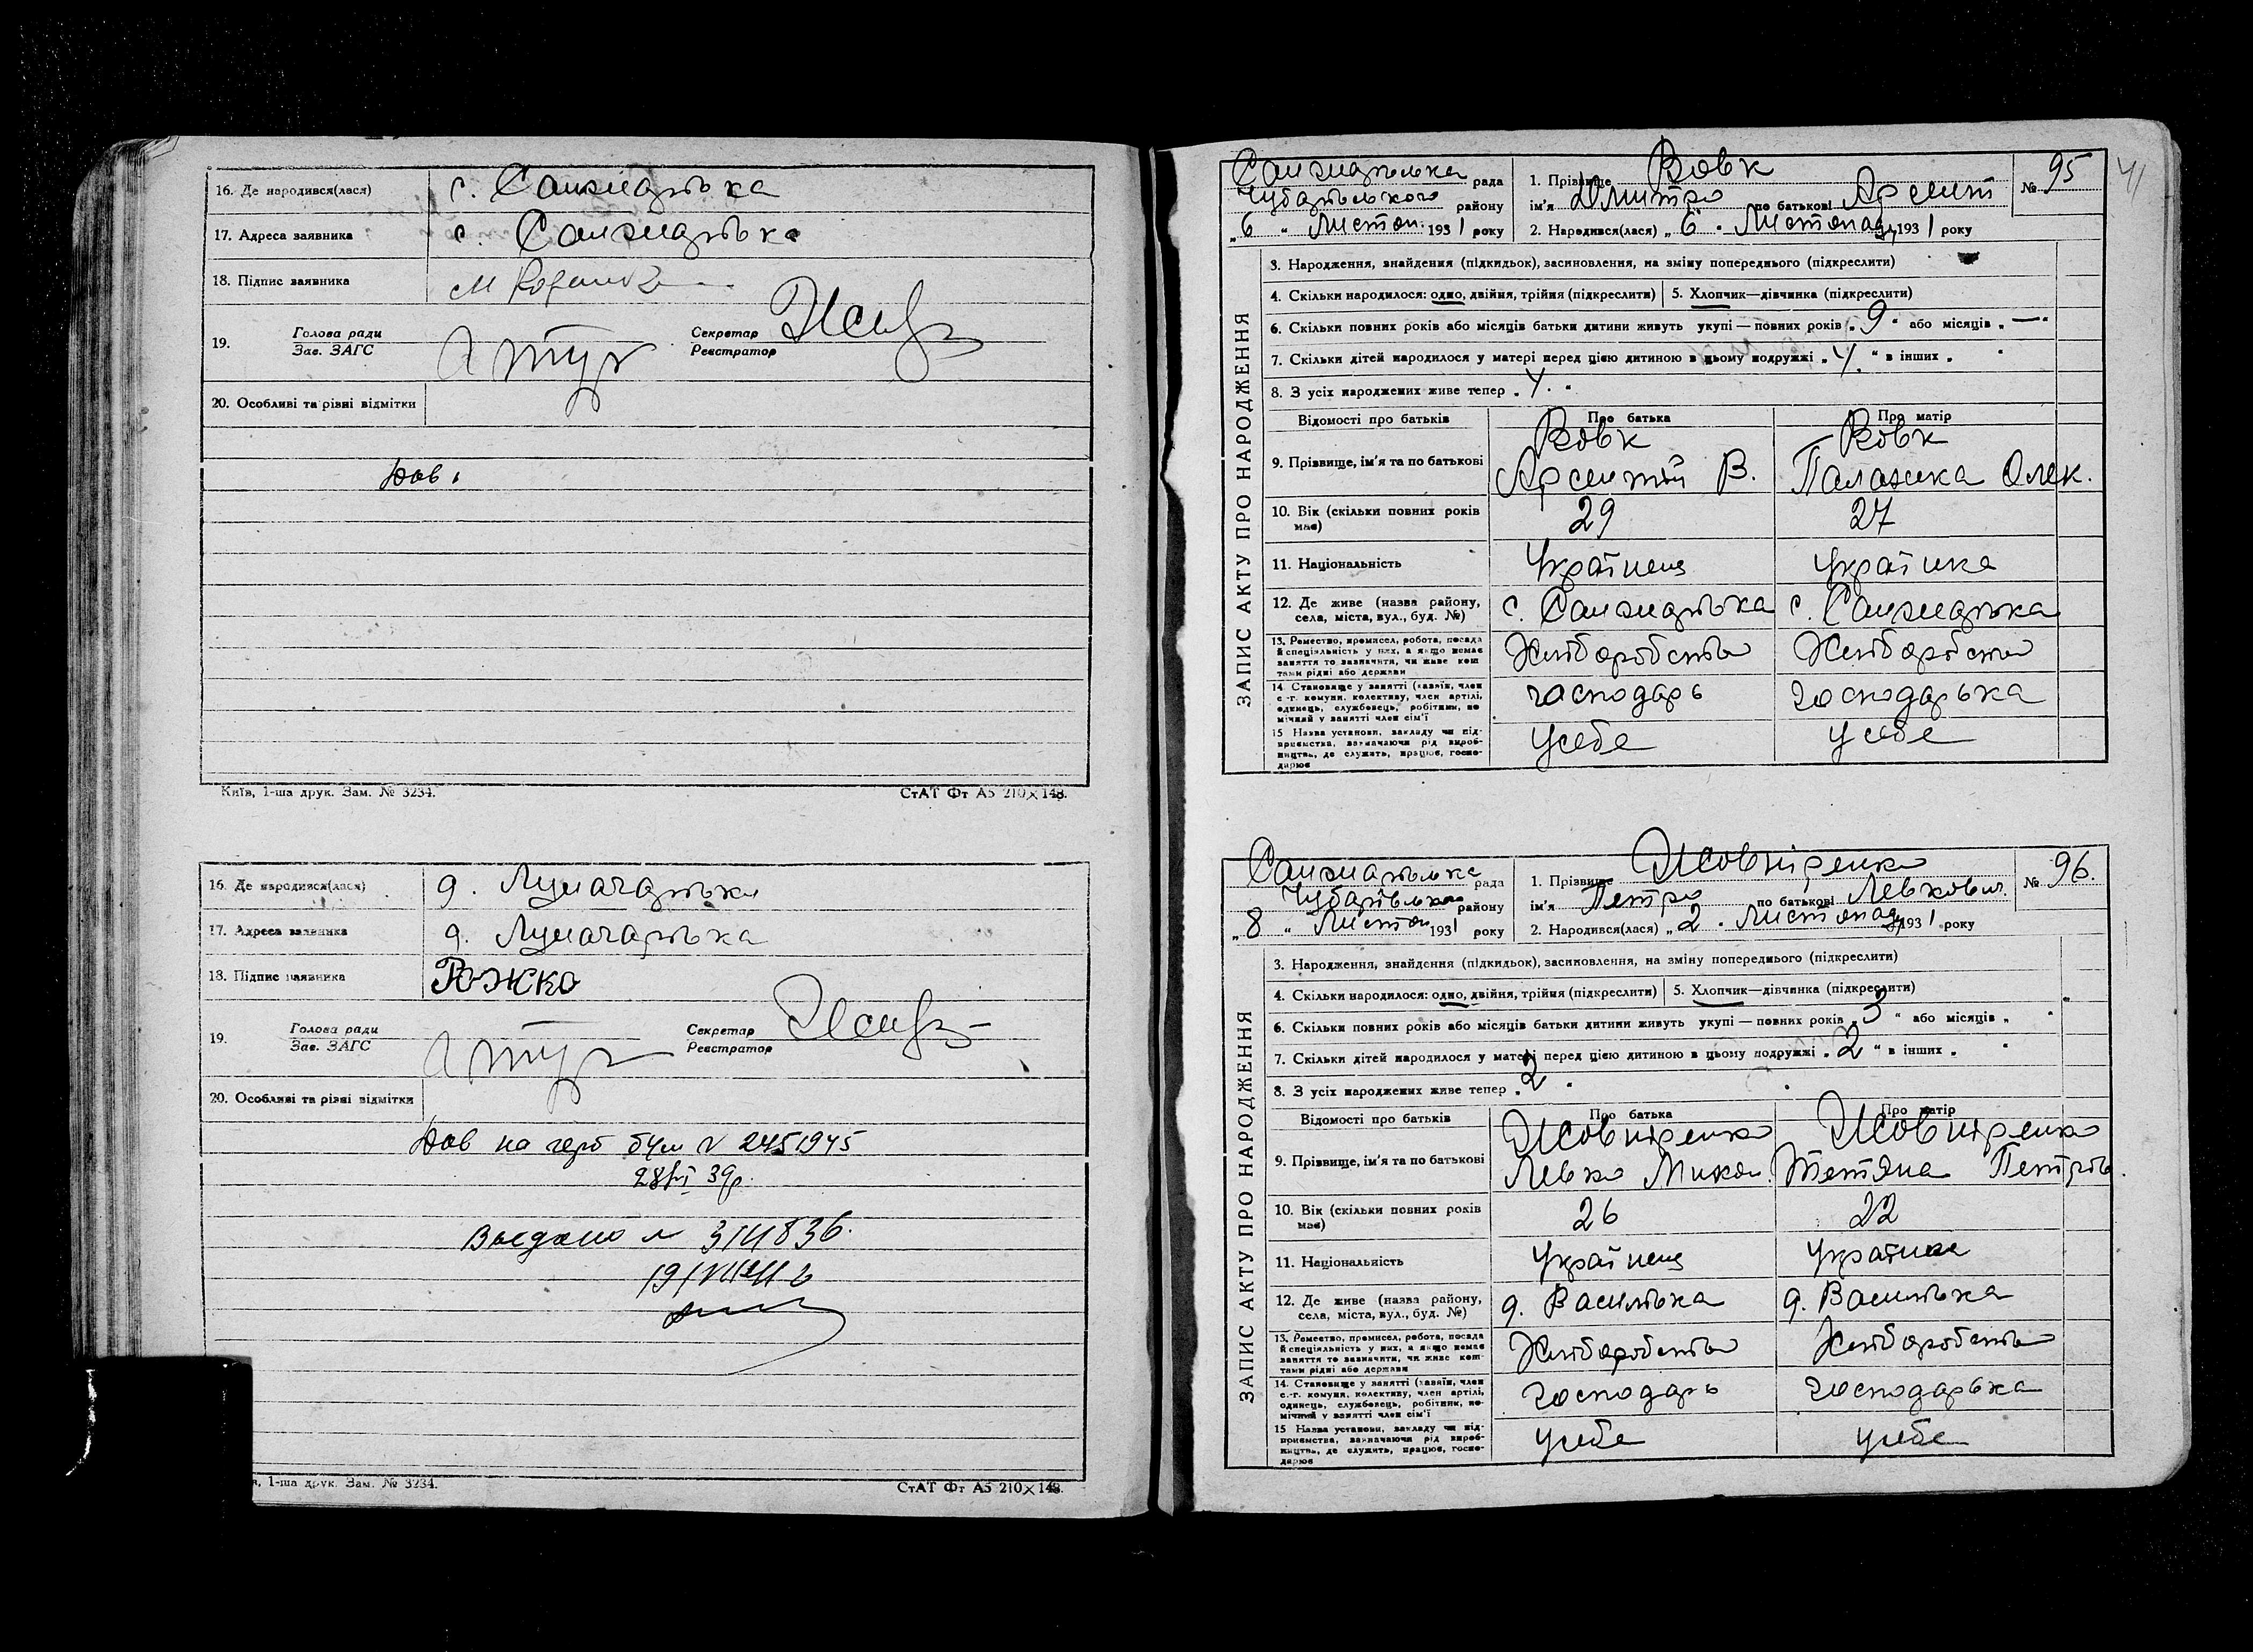 16. Де народився(лася) с. Санжарівка
17. Адреса заявника с. Санжарівка
18. Підпис заявника М
19. Голова ради
Зав. ЗАГС
Секретар
Реєстратор
20. Особливі та різні відмітки
Дов.
Київ, 1-ша друк. Зам. № 3234. СтАТ Фт А5 210×148.
16. Де народився(лася) д. Луначарівка
17. Адреса заявника д. Луначарівка
18. Підпис заявника Рожко
19. Голова ради
Зав. ЗАГС
Секретар
Реєстратор
20. Особливі та різні відмітки
Дов на 2451945
39р.
Выдано №
1-ша друк. Зам. № 3234. СтАТ Фт А5 210×148.
41
рада
Чубарівського району
„6“ Листоп. 1931 року
1. Прізвище Вовк
ім'я Дмитро по батькові Арсент
2. Народився(лася) „6. Листопаду 1931 року
№ 95
ЗАПИС АКТУ ПРО НАРОДЖЕННЯ
3. Народження, знайдення (підкидьок), засиновлення, на зміну попереднього (підкреслити)
4. Скільки народилося: одно, двійня, трійня (підкреслити) 5. Хлопчик—дівчинка (підкреслити)
6. Скільки повних років або місяців батьки дитини живуть укупі — повних років „9“ або місяців „—“
7. Скільки дітей народилося у матері перед цією дитиною в цьому подружжі „4.“ в інших „ “
8. З усіх народжених живе тепер „4.“
Відомості про батьків Про батька Про матір
9. Прізвище, ім'я та по батькові Вовк Арсентій В. Вовк Палажка Олек.
10. Вік (скільки повних років має) 29 27
11. Національність Українець Українка
12. Де живе (назва району, села, міста, вул., буд. №) с. Санжарівка с. Санжарівка
13. Ремество, промисел, робота, посада й спеціяльність у них, а якщо немає заняття то зазначити, чи живе коштами рідні або держави Хліборобство Хліборобство
14. Становище у занятті (хазяїн, член с.-г. комуни, колективу, член артілі, одинець, службовець, робітник, помічний у занятті член сім'ї господарь господарька
15 Назва установи, закладу чи підприємства, зазначаючи рід виробництва, де служить, працює, господарює усебе усебе
рада
району
„8“ Листоп 1931 року
1. Прізвище Жовніренко
ім'я Петро по батькові Левкович.
2. Народився(лася) „2. Листопаду 1931 року
№ 96.
ЗАПИС АКТУ ПРО НАРОДЖЕННЯ
3. Народження, знайдення (підкидьок), засиновлення, на зміну попереднього (підкреслити)
4. Скільки народилося: одно, двійня, трійня (підкреслити) 5. Хлопчик—дівчинка (підкреслити)
6. Скільки повних років або місяців батьки дитини живуть укупі — повних років „3“ або місяців „ “
7. Скільки дітей народилося у матері перед цією дитиною в цьому подружжі „2“ в інших „ “
8. З усіх народжених живе тепер „2“
Відомості про батьків Про батька Про матір
9. Прізвище, ім'я та по батькові Жовніренко Левко Микол. Жовніренко Тетяна Петрів.
10. Вік (скільки повних років має) 26 22
11. Національність Українець Українка
12. Де живе (назва району, села, міста, вул., буд. №) д. Василівка д. Василівка
13. Ремество, промисел, робота, посада й спеціяльність у них, а якщо немає заняття то зазначити, чи живе коштами рідні або держави Хліборобство Хліборобство
14. Становище у занятті (хазяїн, член с.-г. комуни, колективу, член артілі, одинець, службовець, робітник, помічний у занятті член сім'ї господарь господарька
15 Назва установи, закладу чи підприємства, зазначаючи рід виробництва, де служить, працює, господарює усебе усебе